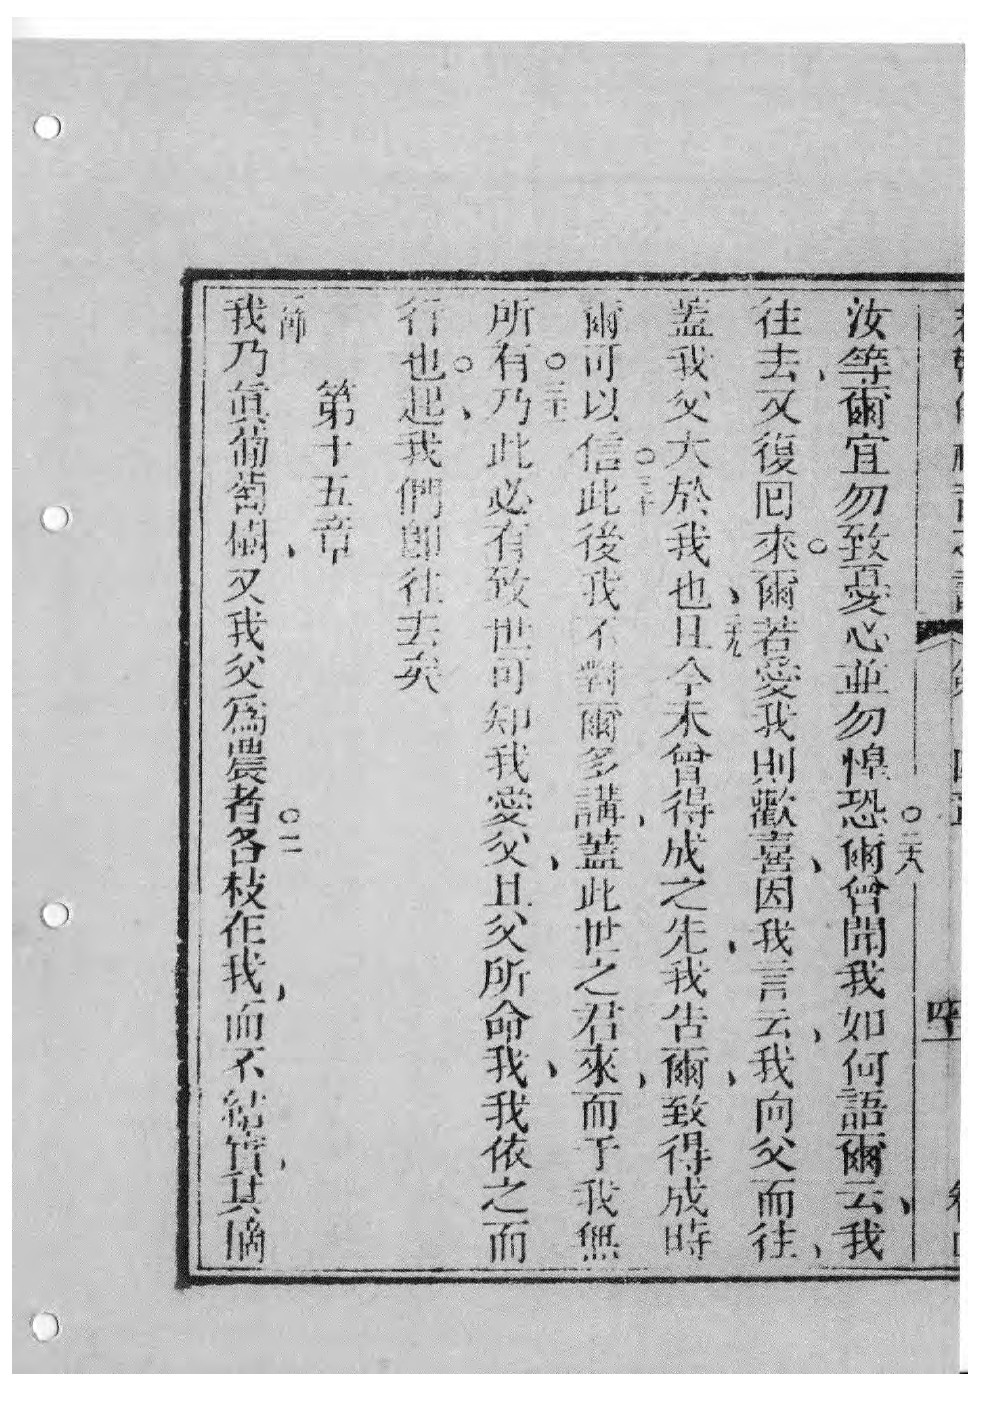 汝等爾宜勿致憂心並勿惶恐○二八爾曾聞我如何語爾云我
往去又復囘來○爾若愛我則歡喜因我言云我向父而往
蓋我父大於我也二九且今未曾得成之先我告爾致得成時
爾可以信○三十此後我不對爾多講蓋此世之君來而于我無
所有○三一乃此必有致世可知我愛父且父所命我我依之而
行也○起我們卽往去矣
第十五章
一節我乃眞葡萄樹又我父爲農者○二各枝在我而不結實其